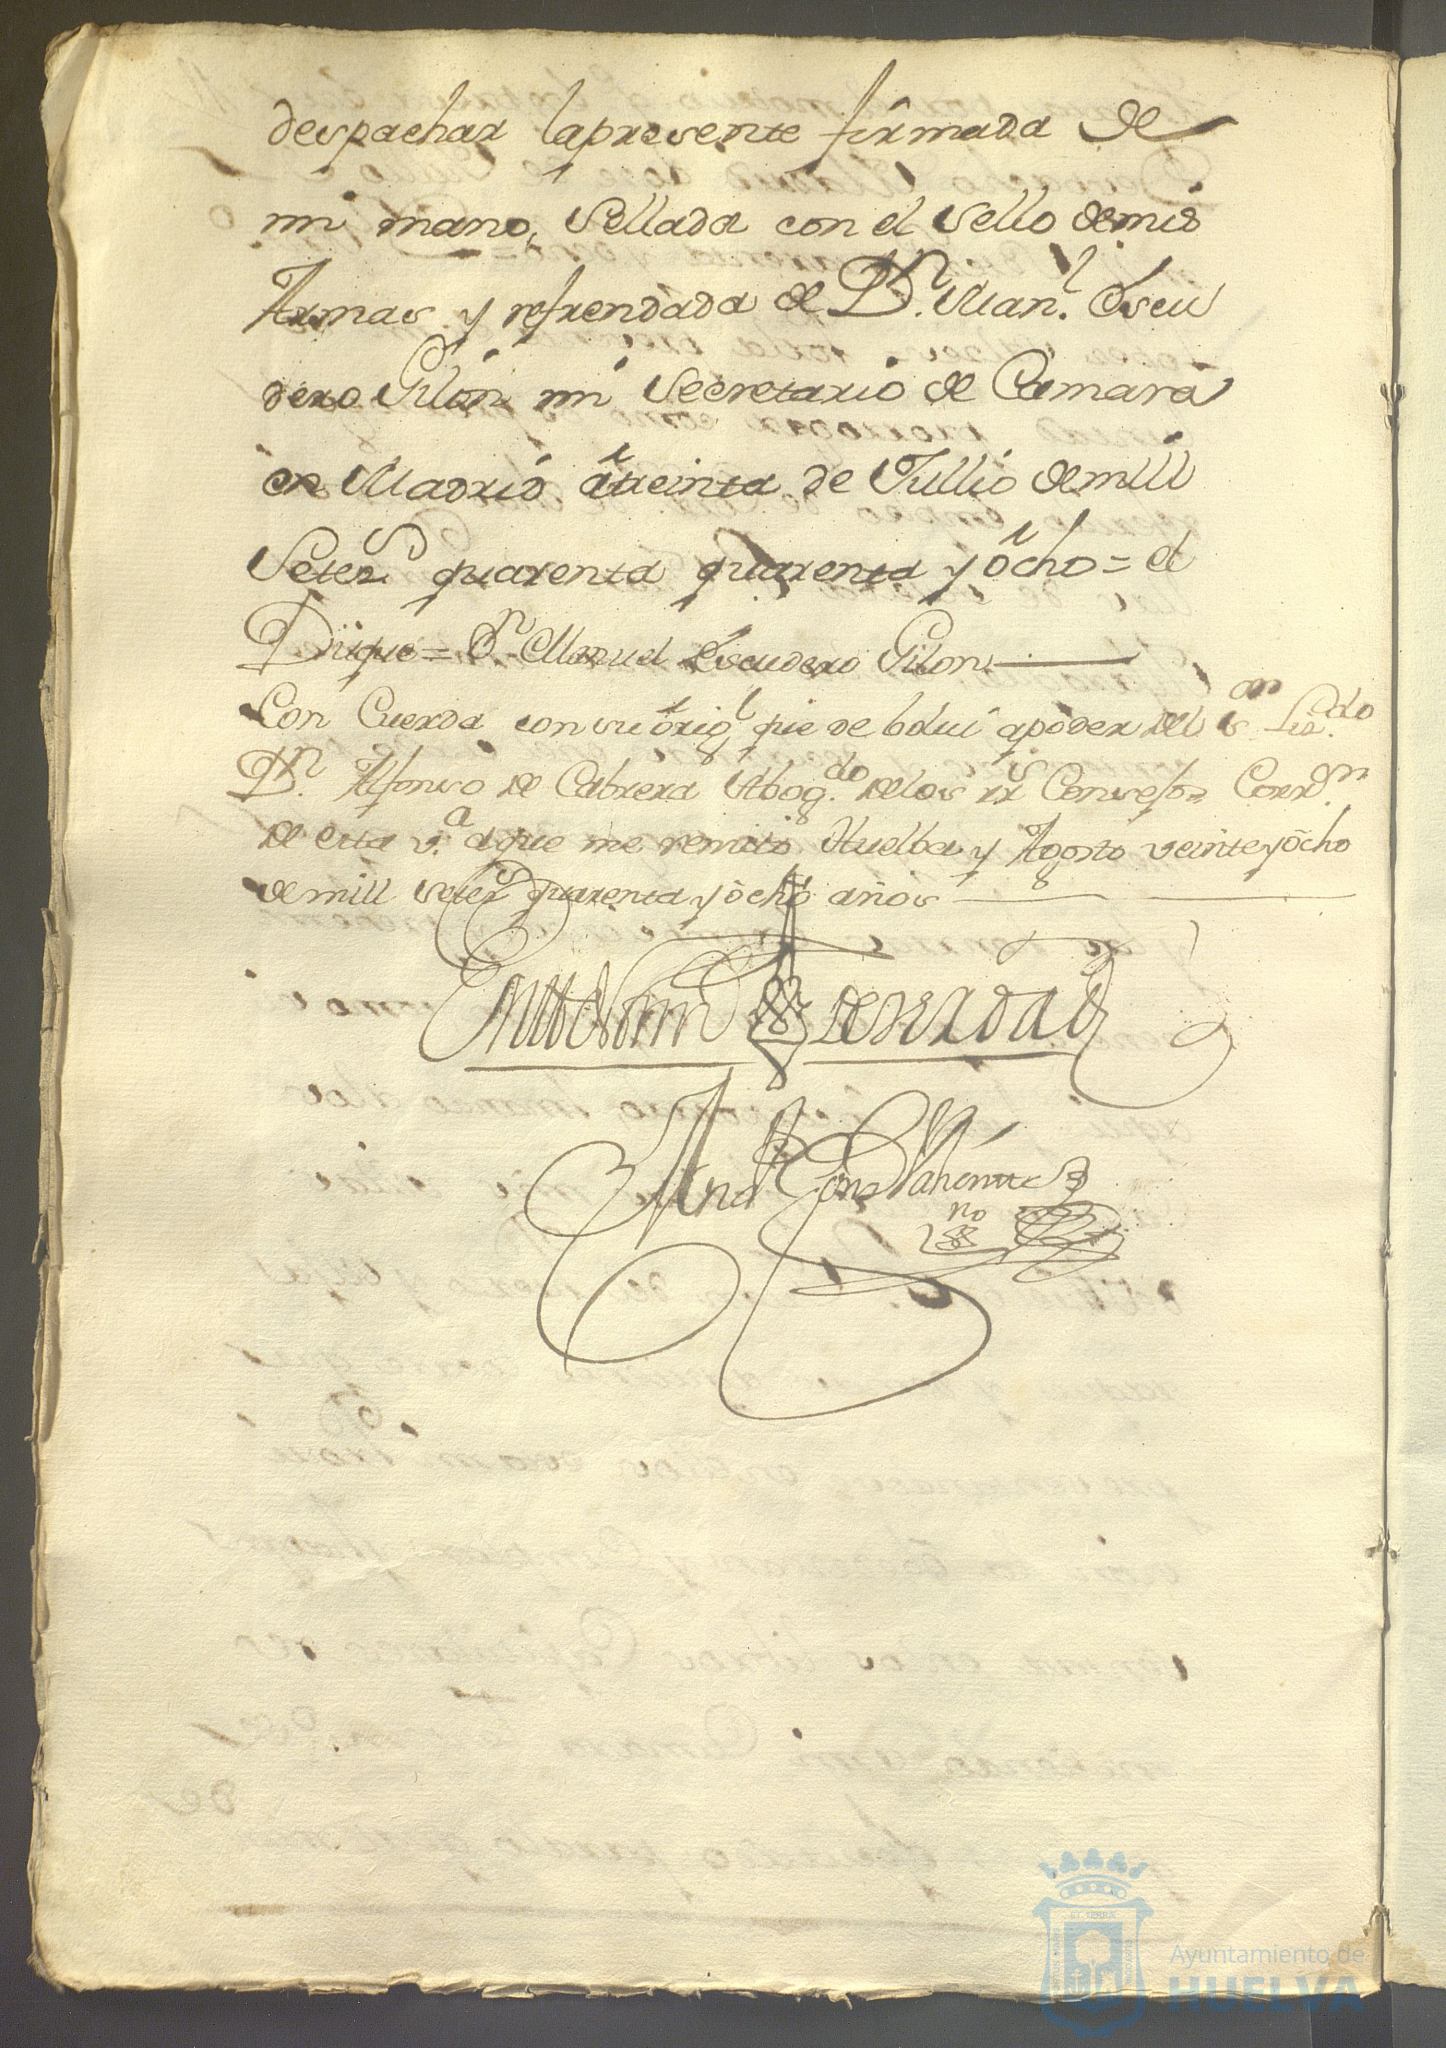 despachar lapresente firmada de
mi mano, Sellada con el Sello demis
Armas y refrendada de Dn. Man.l Escu
dero Gilón mi Secretario de Camara
en Madrid â treinta de Jullio demill
Setezs quarenta quarenta y ôcho = el
Duque = Dn Manuel Escudero Gilon
Con Cuerda con su ôrigl que de bolui a poder del Sor Lizdo
Dn. Alfonso de Cabrera Abog.do delos Rs Consejos Corr.
de esta v.a a que me remito Huelba y Agosto veinte y ôcho
de mill setezs quarenta y ôcho años
En testimo de verdad
no
Ayuntamiento de
HUELVA